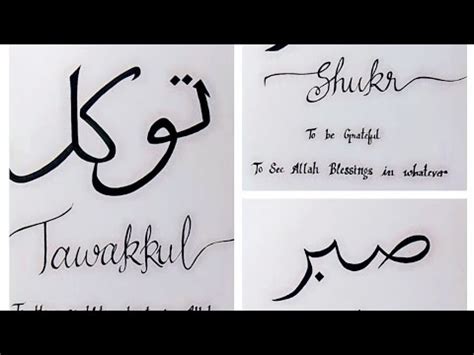 توكل
Tawakkul
Shukr
To be Grateful
To See Allah Blessings in whatever
صبر